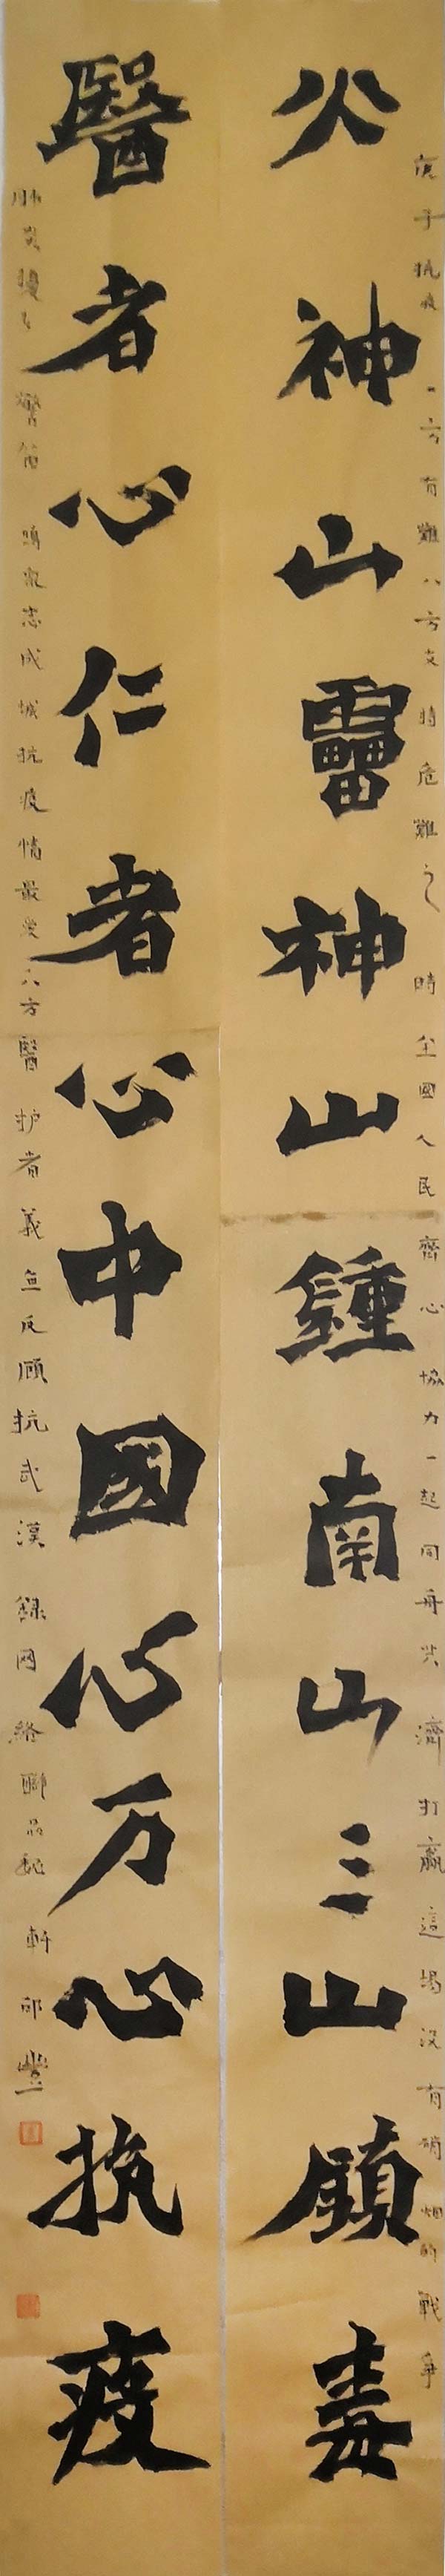 庚子抗疫一方有難八方支持危難之時全國人民齊心協力一起同舟共濟打贏這場没有硝烟的戰爭
火神山雷神山鍾南山三山鎮毒
醫者心仁者心中國心万心执疫
肺炎 警笛鳴衆志成城抗疫情最美八方醫护者義無反顧抗武漢錄网絡聯 軒邱豐